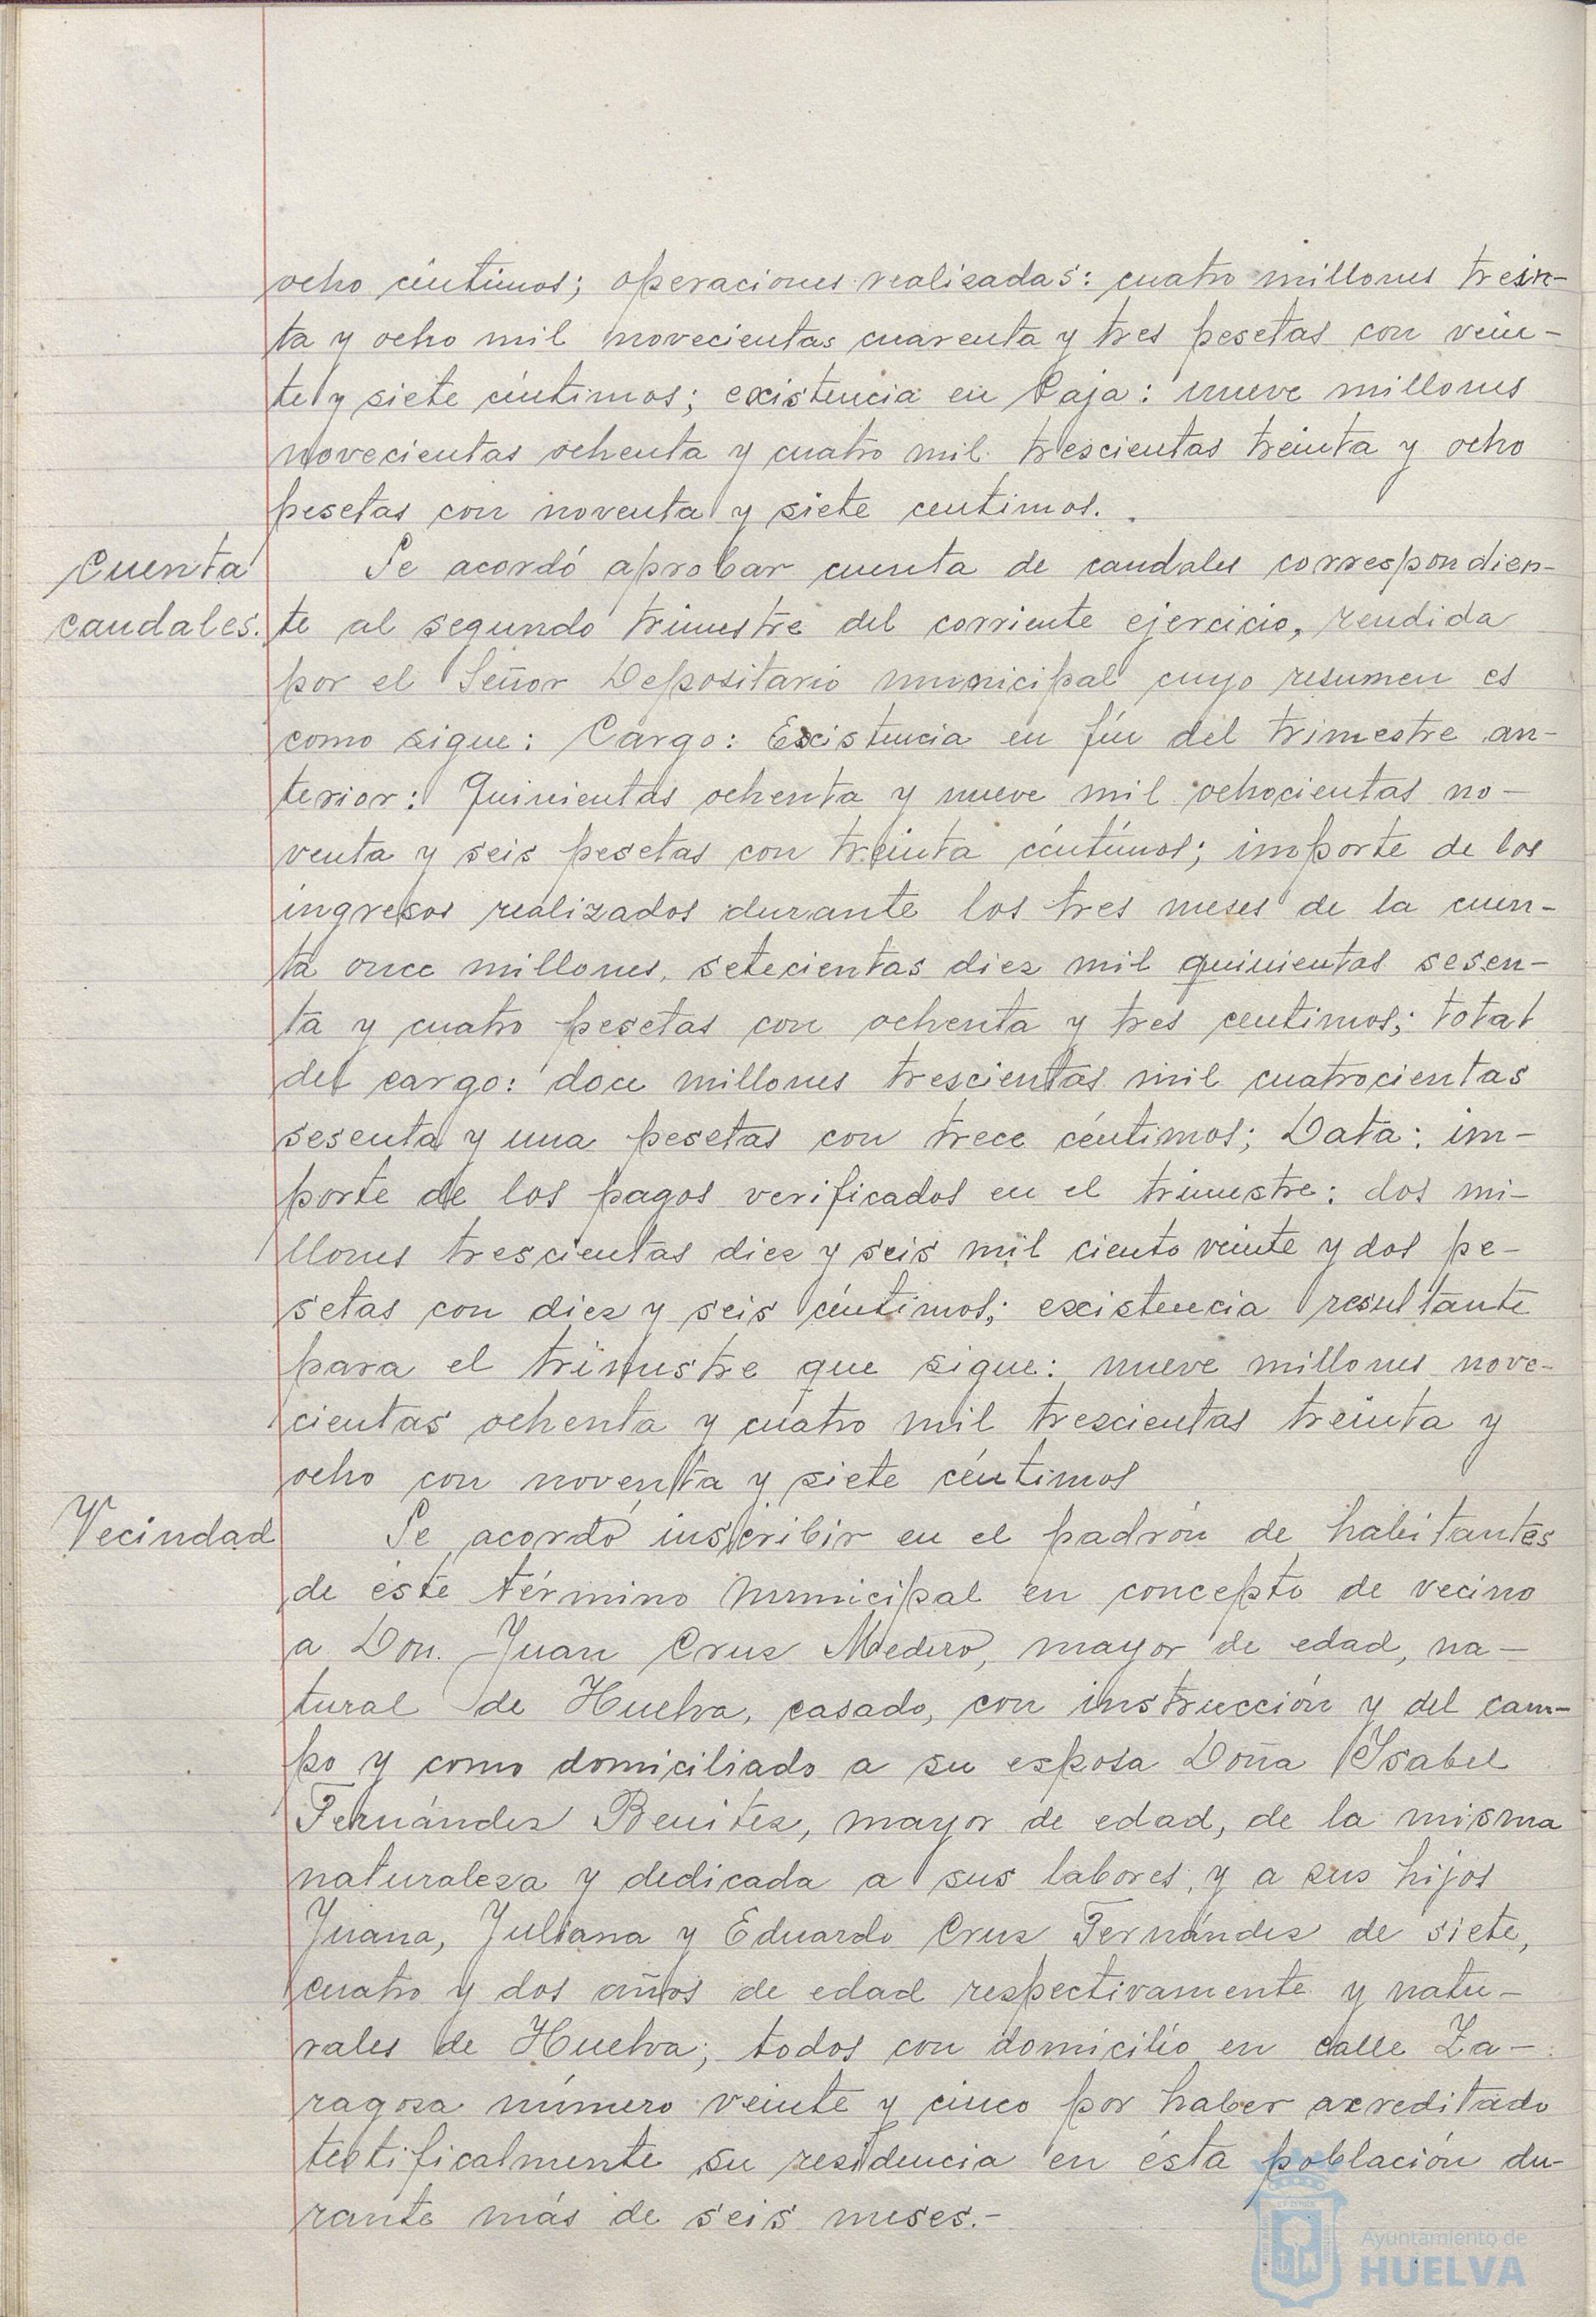 ocho céntimos; operaciones realizadas: cuatro millones trein-
ta y ocho mil novecientas cuarenta y tres pesetas con vein-
te y siete céntimos; existencia en Caja: nueve millones
novecientas ochenta y cuatro mil trescientas treinta y ocho
pesetas con noventa y siete centimos.
Cuenta
caudales.
Se acordó aprobar cuenta de caudales correspondien-
te al segundo trimestre del corriente ejercicio, rendida
por el Señor Depositario municipal cuyo resumen es
como sigue: Cargo: Existencia en fín del trimestre an-
terior: Quinientas ochenta y nueve mil ochocientas no-
venta y seis pesetas con treinta céntimos; importe de los
ingresos realizados durante los tres meses de la cuen-
ta once millones, setecientas diez mil quinientas sesen-
ta y cuatro pesetas con ochenta y tres centimos; total
del cargo: doce millones trescientas mil cuatrocientas
sesenta y una pesetas con trece céntimos; Data: im-
porte de los pagos verificados en el trimestre: dos mi-
llones trescientas diez y seis mil ciento veinte y dos pe-
setas con diez y seis céntimos; existencia resultante
para el trimestre que sigue: nueve millones nove-
cientas ochenta y cuatro mil trescientas treinta y
ocho con noventa y siete céntimos
Vecindad
Se acordó inscribir en el padrón de habitantes
de éste término municipal en concepto de vecino
a Don Juan Cruz Medero, mayor de edad, na-
tural de Huelva, casado, con instrucción y del cam-
po y como domiciliado a su esposa Doña Ysabel
Fernández Benitez, mayor de edad, de la misma
naturaleza y dedicada a sus labores, y a sus hijos
Juana, Juliana y Eduardo Cruz Fernández de siete,
cuatro y dos años de edad respectivamente y natu-
rales de Huelva; todos con domicilio en calle Za-
ragoza número veinte y cinco por haber acreditado
testificalmente su residencia en ésta población du-
rante más de seis meses.-
Ayuntamiento de
HUELVA